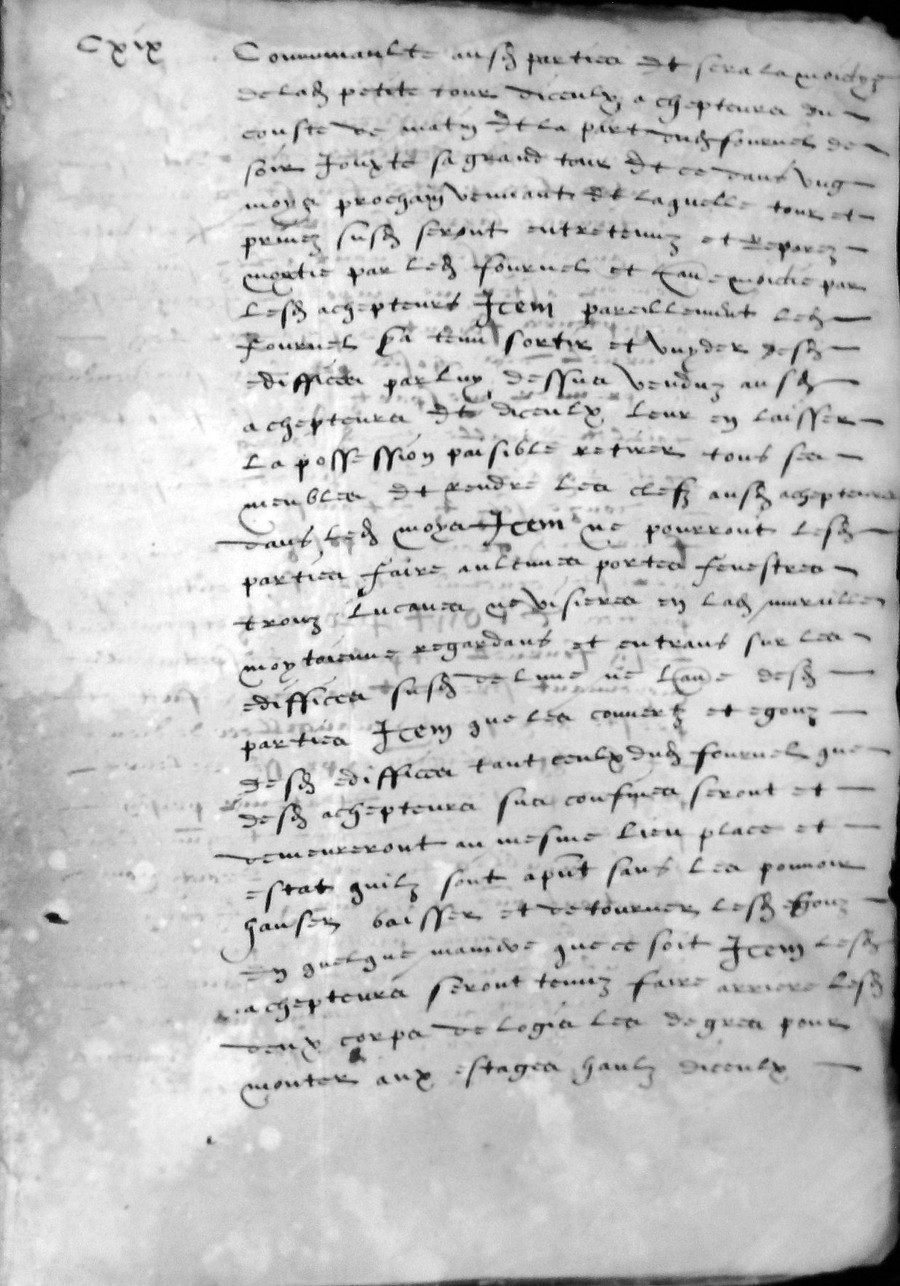 Cxix
Communaulte ausd parties Et sera la moictye
de lad petite tour diceulx achepteurs du
couste de matin Et la part dud fournel de
soir Jouxte sa grand tour Et ce dans ung
moys prochain venant Et laquelle tour et
privez susd seront entretenuz et reparez
moictie par led fournel et laue moictie par
lesd achepteurs Item pareillement led
fournel sera tenu sortir et vuyder desd
edifices par luy dessus venduz ausd
achepteurs Et diceulx leur en laisser
la possession paisible retirer tous ses
meubles Et rendre les clefz ausd achepteurs
dans led moys Item ne pourront lesd
parties faire aulcunes portes fenestres
trouz lucanes ne visieres en lad muraille
moytoienne regardans et entrans sur les
ediffices susd de lune ne laue desd
parties Item que les couvertz et egouz
desd edifices tant ceulx dud fournel que
desd achepteurs sus confines seront et
demeureront au mesme lieu place et
estat quilz sont apnt sans les pouvoir
hausser baisser et detourner lesd egouz
en quelque maniere que ce soit Item lesd
achepteurs seront tenuz faire arriere lesd
deux corps de logis les degres pour
monter aux estages haulz diceulx